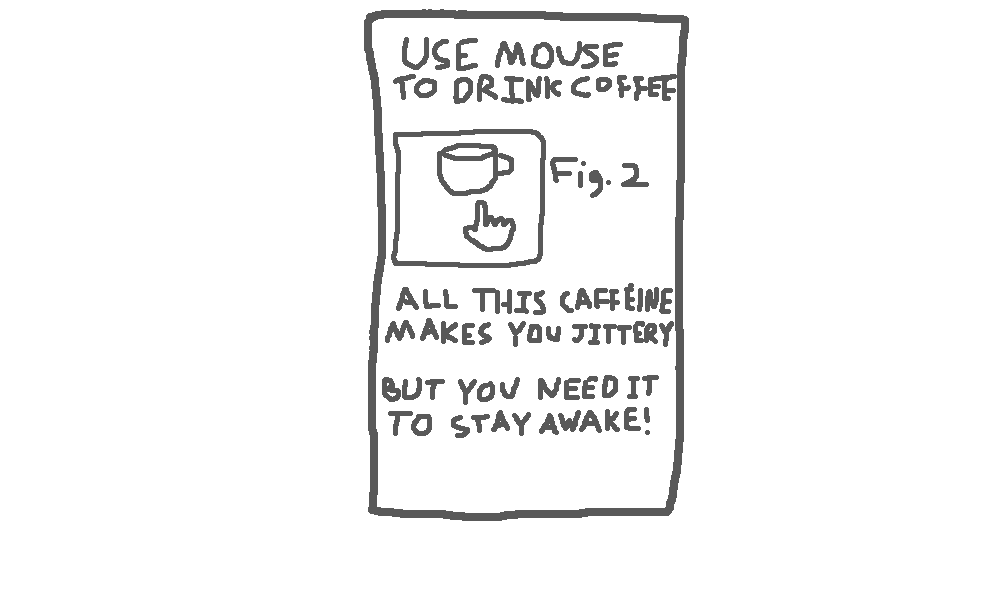 USE MOUSE
TO DRINK COFFEE
Fig. 2
ALL THIS CAFFEINE
MAKES YOU JITTERY
BUT YOU NEED IT
TO STAY AWAKE!